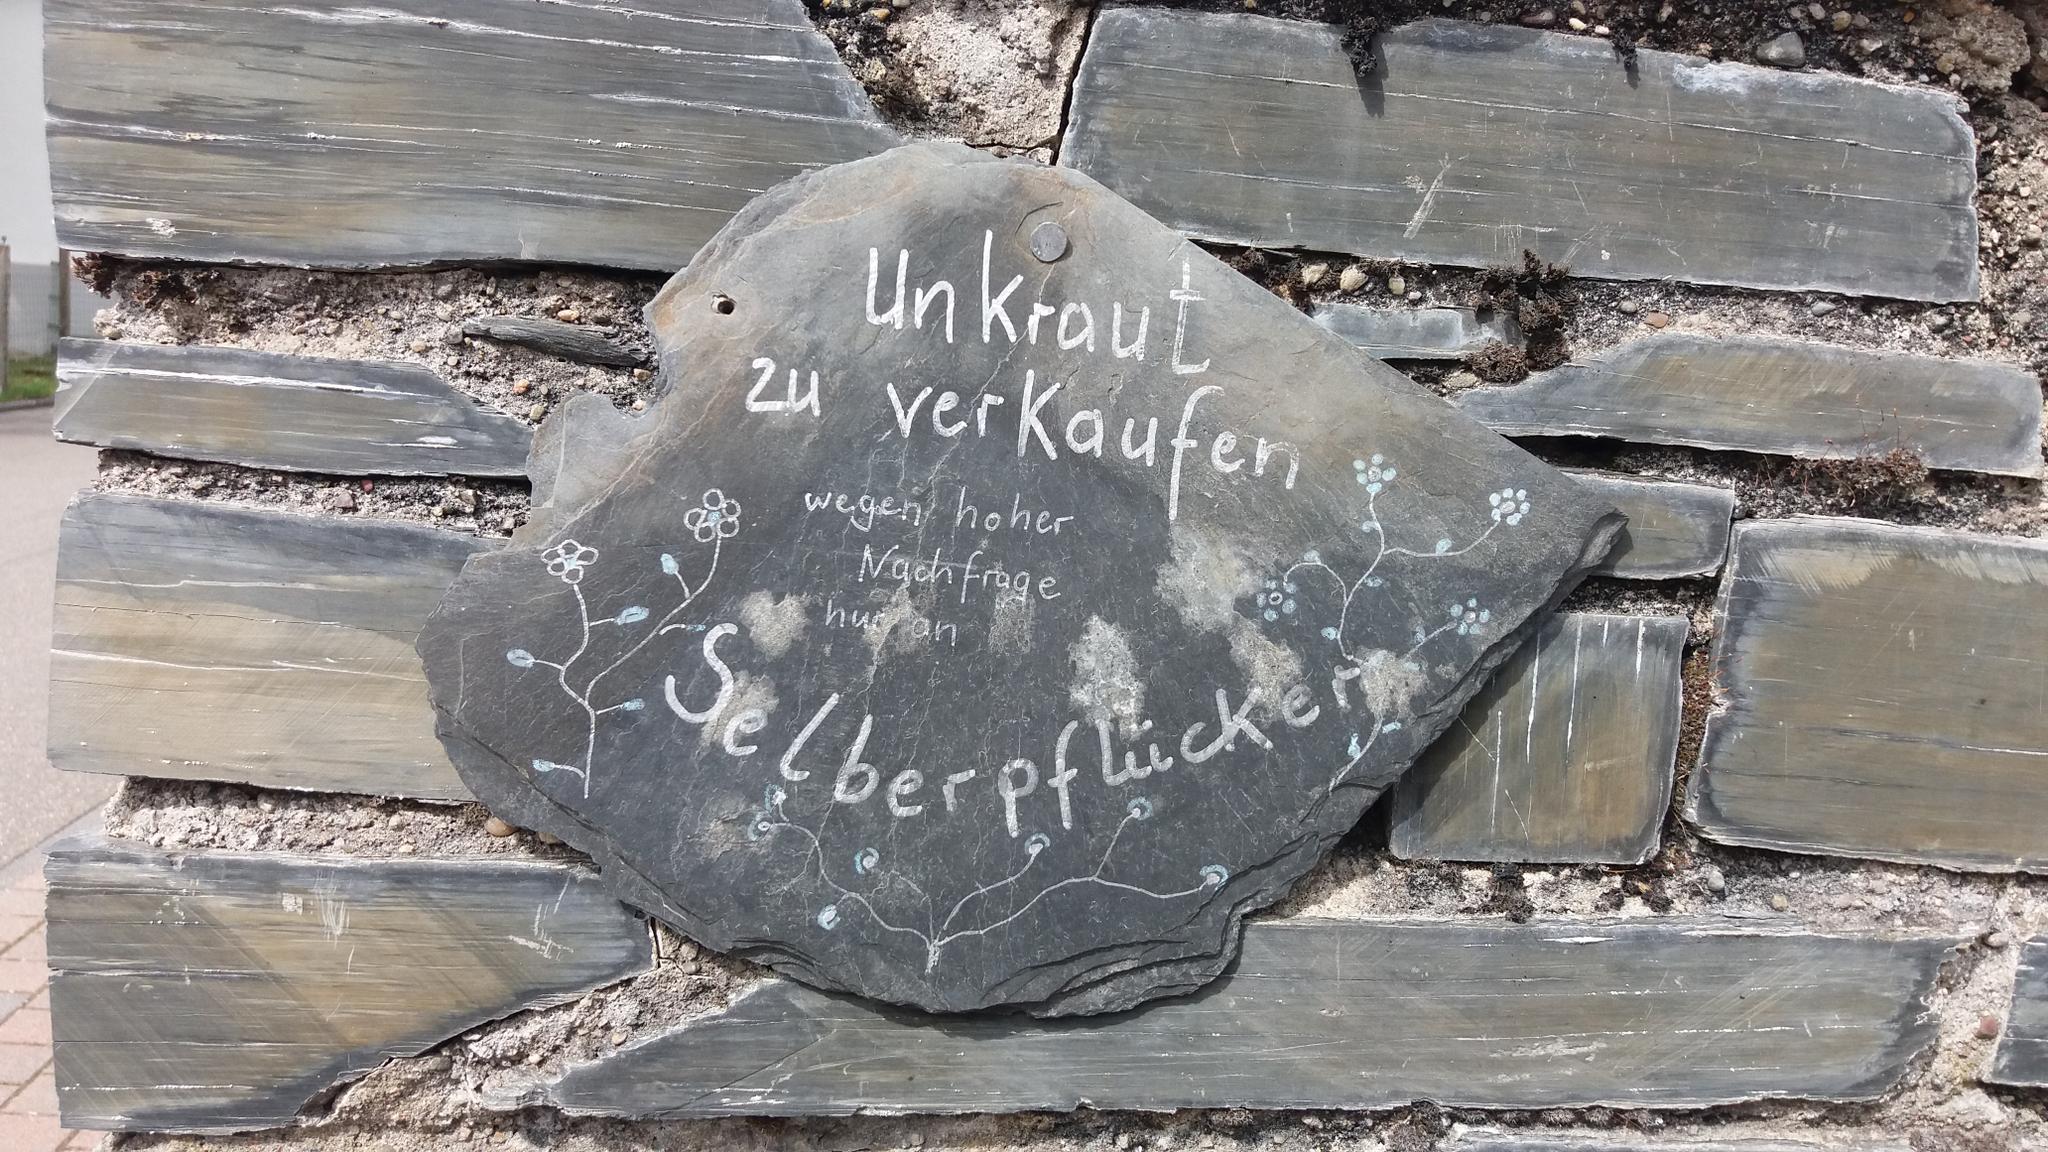 Unkraut
zu verkaufen
wegen hoher
Nachfrage
nur an
Selberpflücker